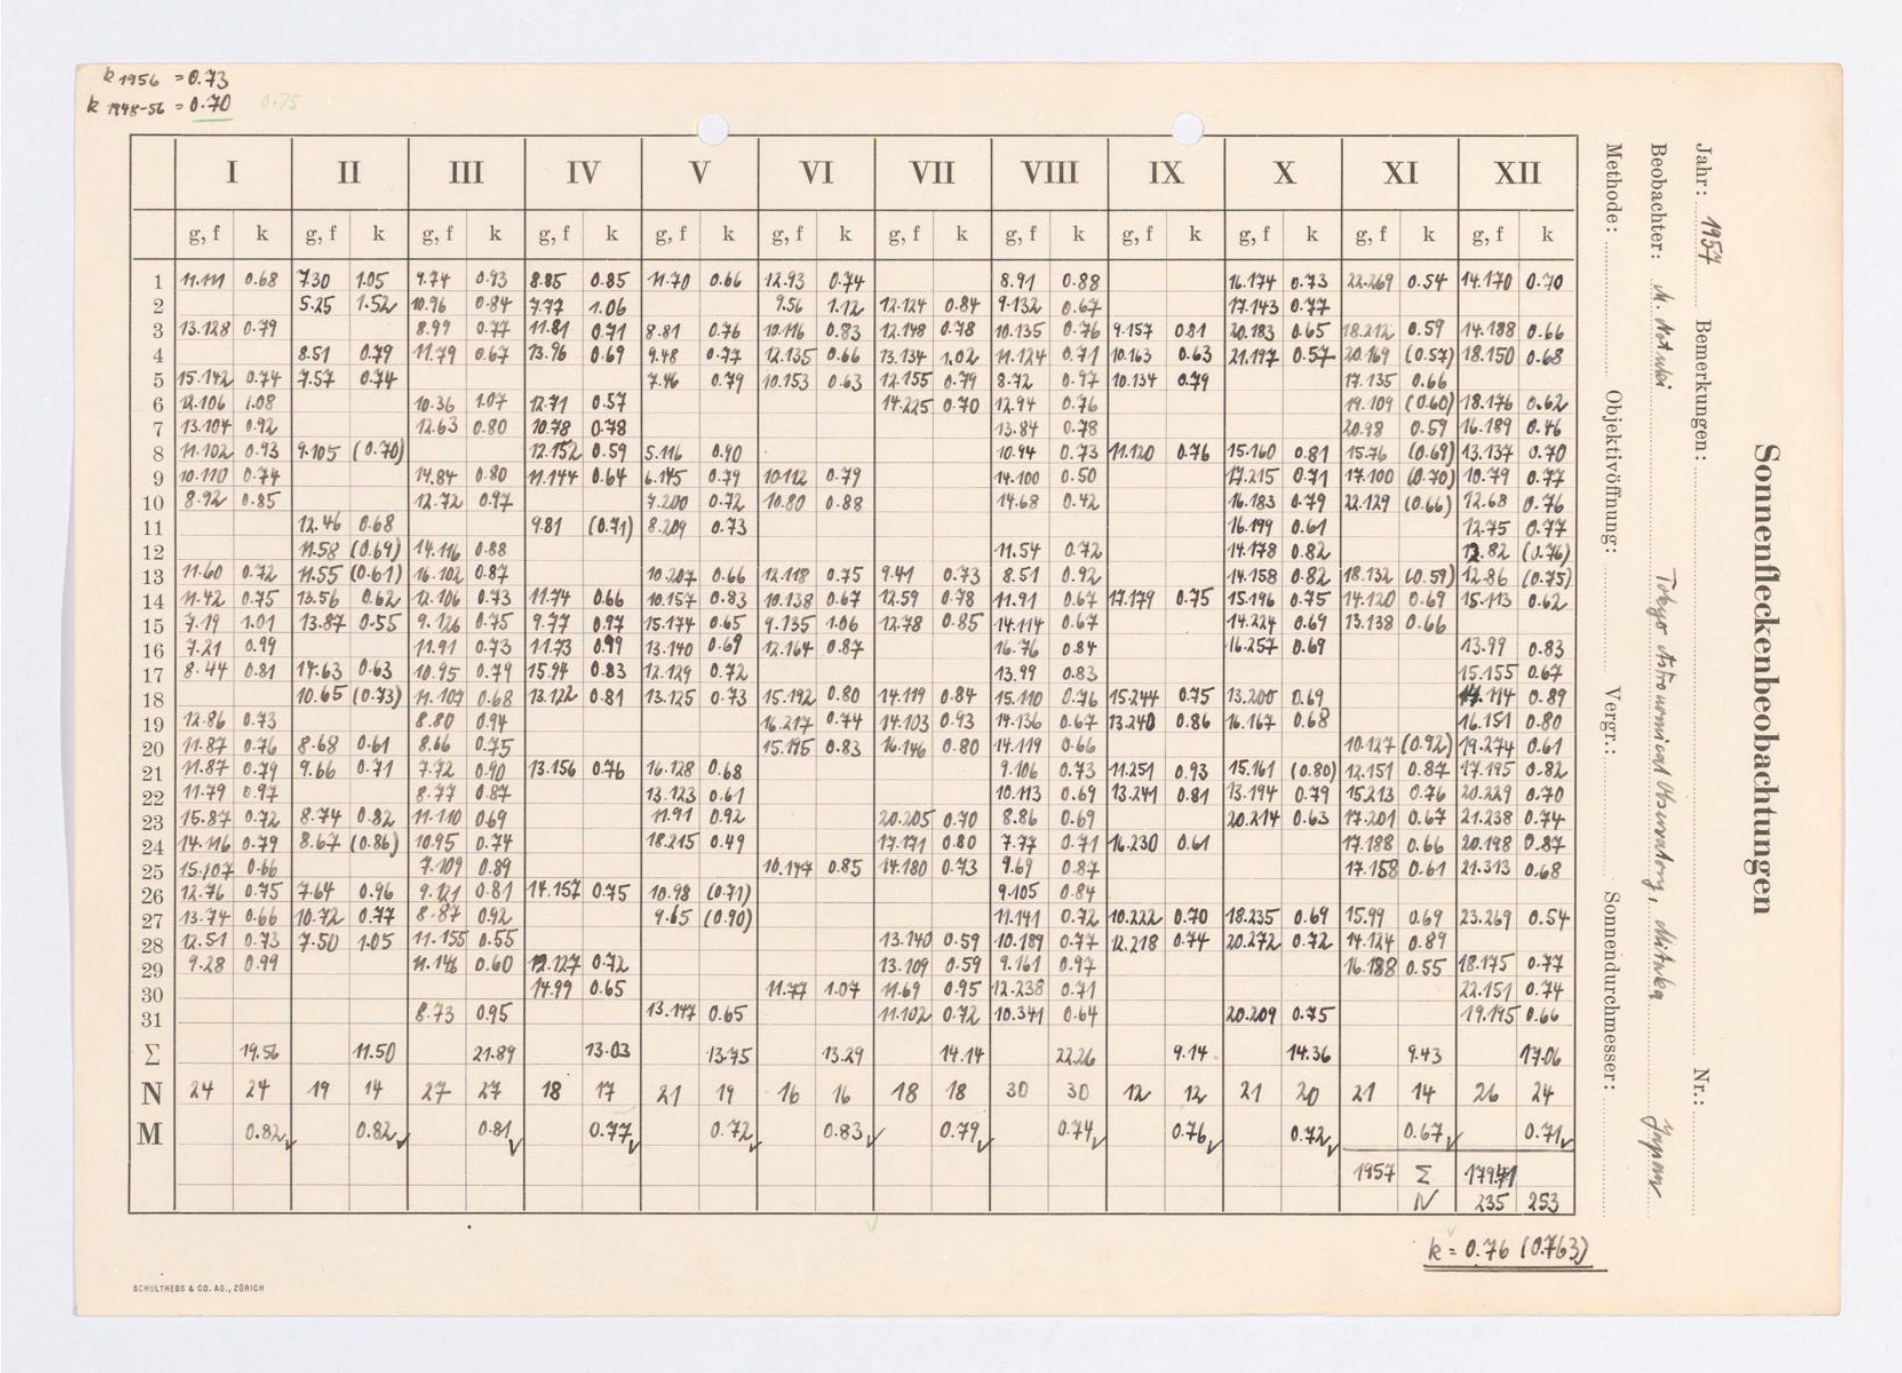 k 1956 = 0.73
k 1948-56 = 0.70 0.75
I II III IV V VI VII VIII IX X XI XII
g, f k g, f k g, f k g, f k g, f k g, f k g, f k g, f k g, f k g, f k g, f k g, f k
1 11.111 0.68 7.30 1.05 9.74 0.93 8.85 0.85 11.70 0.66 12.93 0.74 8.91 0.88 16.174 0.73 22.269 0.54 14.170 0.70
2 5.25 1.52 10.96 0.84 7.77 1.06 9.56 1.12 12.124 0.84 9.132 0.67 17.143 0.77
3 13.128 0.79 8.99 0.77 11.81 0.71 8.81 0.76 10.116 0.83 12.148 0.78 10.135 0.76 9.157 0.81 20.183 0.65 18.212 0.59 14.188 0.66
4 8.51 0.79 11.79 0.67 13.96 0.69 9.48 0.77 12.135 0.66 13.134 1.02 11.124 0.71 10.163 0.63 21.197 0.57 20.169 (0.57) 18.150 0.68
5 15.142 0.74 7.57 0.74 7.46 0.79 10.153 0.63 12.155 0.79 8.72 0.97 10.134 0.79 17.135 0.66
6 12.106 1.08 10.36 1.07 12.71 0.57 14.225 0.70 12.94 0.76 19.109 (0.60) 18.176 0.62
7 13.104 0.92 12.63 0.80 10.78 0.78 13.84 0.78 20.98 0.59 16.189 0.46
8 11.102 0.93 9.105 (0.70) 12.152 0.59 5.116 0.90 10.94 0.73 11.120 0.76 15.160 0.81 15.76 (0.69) 13.137 0.70
9 10.110 0.74 14.84 0.80 11.144 0.64 6.145 0.79 10.112 0.79 14.100 0.50 17.215 0.71 17.100 (0.70) 10.79 0.77
10 8.92 0.85 12.72 0.97 7.200 0.72 10.80 0.88 14.68 0.42 16.183 0.79 22.129 (0.66) 12.68 0.76
11 12.46 0.68 9.81 (0.71) 8.209 0.73 16.199 0.61 12.75 0.77
12 11.58 (0.69) 14.116 0.88 11.54 0.72 14.178 0.82 12.82 (0.76)
13 11.60 0.72 11.55 (0.61) 16.102 0.87 10.207 0.66 12.118 0.75 9.41 0.73 8.51 0.92 14.158 0.82 18.132 (0.59) 12.86 (0.75)
14 11.42 0.75 13.56 0.62 12.106 0.73 11.74 0.66 10.157 0.83 10.138 0.67 12.59 0.78 11.91 0.67 17.179 0.75 15.196 0.75 14.120 0.69 15.113 0.62
15 7.19 1.01 13.87 0.55 9.126 0.75 9.77 0.97 15.174 0.65 9.135 1.06 12.78 0.85 14.114 0.67 14.224 0.69 13.138 0.66
16 7.21 0.99 11.91 0.73 11.73 0.99 13.140 0.69 12.164 0.87 16.76 0.84 16.257 0.69 13.99 0.83
17 8.44 0.81 14.63 0.63 10.95 0.79 15.94 0.83 12.129 0.72 13.99 0.83 15.155 0.67
18 10.65 (0.73) 11.107 0.68 13.122 0.81 13.125 0.73 15.192 0.80 14.119 0.84 15.110 0.76 15.244 0.75 13.200 0.69 114 0.89
19 12.86 0.73 8.80 0.94 16.217 0.74 14.103 0.93 14.136 0.67 13.240 0.86 16.167 0.68 16.151 0.80
20 11.87 0.76 8.68 0.61 8.66 0.75 15.195 0.83 16.146 0.80 14.119 0.66 10.127 (0.92) 19.274 0.61
21 11.87 0.79 9.66 0.71 7.72 0.90 13.156 0.76 16.128 0.68 9.106 0.73 11.251 0.93 15.161 (0.80) 12.151 0.87 17.195 0.82
22 11.79 0.97 8.77 0.87 13.123 0.61 10.113 0.69 13.241 0.81 13.194 0.79 15.213 0.76 20.229 0.70
23 15.87 0.72 8.74 0.82 11.110 0.69 11.91 0.92 20.205 0.70 8.86 0.69 20.214 0.63 17.201 0.67 21.238 0.74
24 14.116 0.79 8.67 (0.86) 10.95 0.74 18.215 0.49 17.171 0.80 7.77 0.71 16.230 0.61 17.188 0.66 20.198 0.87
25 15.107 0.66 7.109 0.89 10.147 0.85 14.180 0.73 9.69 0.87 17.158 0.61 21.313 0.68
26 12.76 0.75 7.64 0.96 9.121 0.81 14.157 0.75 10.98 (0.71) 9.105 0.84
27 13.74 0.66 10.72 0.77 8.87 0.92 9.65 (0.90) 11.141 0.72 10.222 0.70 18.235 0.69 15.99 0.69 23.269 0.54
28 12.51 0.73 7.50 1.05 11.155 0.55 13.140 0.59 10.189 0.77 12.218 0.74 20.272 0.72 14.124 0.89
29 9.28 0.99 11.146 0.60 12.127 0.72 13.109 0.59 9.161 0.97 16.188 0.55 18.175 0.77
30 14.99 0.65 11.77 1.07 11.69 0.95 12.238 0.71 22.151 0.74
31 8.73 0.95 13.147 0.65 11.102 0.72 10.341 0.64 20.209 0.75 19.195 0.66
Σ 19.56 11.50 21.89 13.03 13.75 13.29 14.14 22.26 9.14 14.36 9.43 17.06
N 24 24 19 14 27 27 18 17 21 19 16 16 18 18 30 30 12 12 21 20 21 14 26 24
M 0.82 0.82 0.81 0.77 0.72 0.83 0.79 0.74 0.76 0.72 0.67 0.71
1957 Σ 179.41
N 235 253
k = 0.76 (0.763)
SCHULTHESS & CO. AG., ZÜRICH
Sonnenfleckenbeobachtungen
Jahr: 1957 Bemerkungen: Nr.:
Beobachter: M. Tokyo Astronomical Observatory, Mitaka Japan
Methode: Objektivöffnung: Vergr.: Sonnendurchmesser: